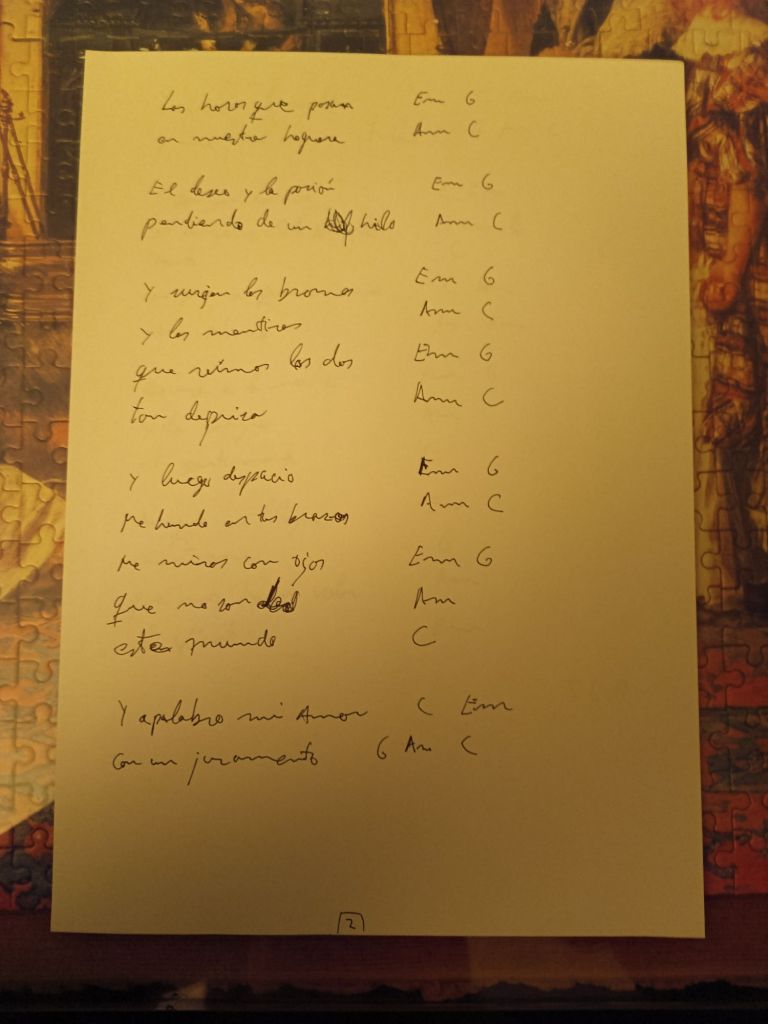 Las horas que pasan Em G
en nuestra hoguera Am C
El deseo y la pasión Em G
pendiendo de un hilo Am C
Y surgen las bromas Em G
Y las mentiras Am C
que reímos los dos Em G
tan deprisa Am C
Y luego despacio Em G
Me hundo en tus brazos Am C
Me miras con ojos Em G
que no son de Am
este mundo C
Y apalabro mi Amor C Em
con un juramento G Am C
2